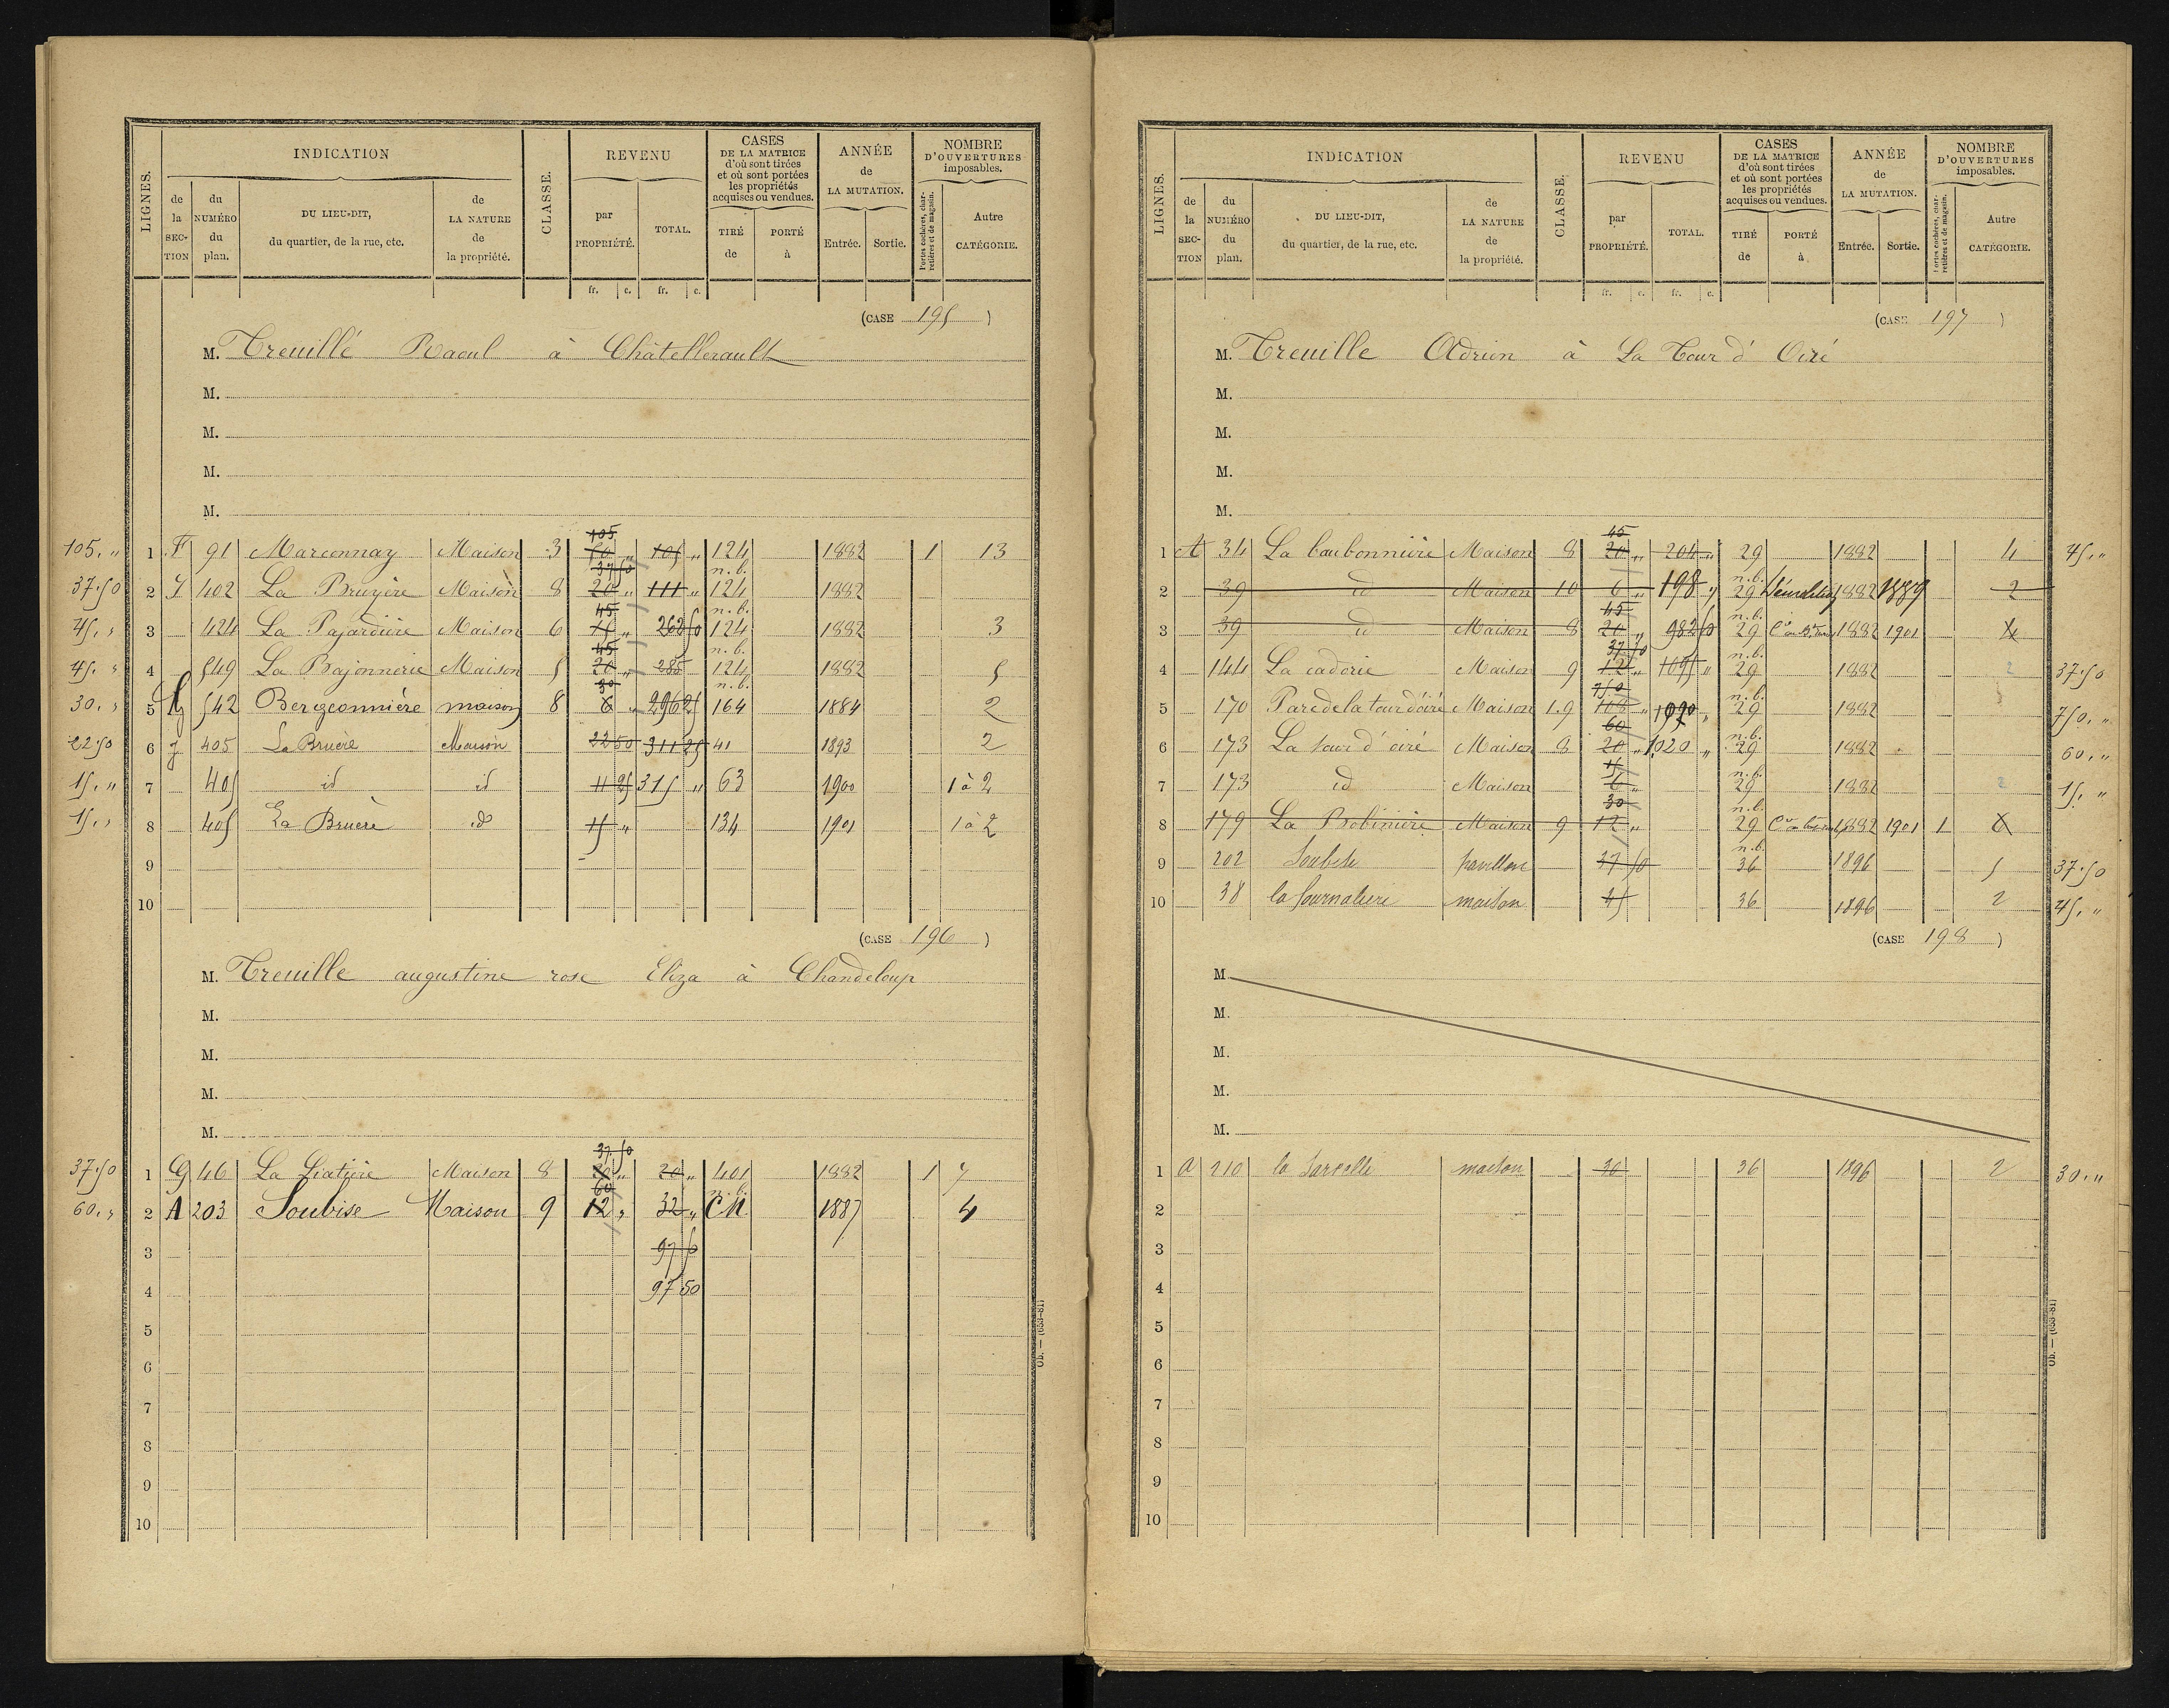 LIGNES. INDICATION CLASSE. REVENU CASES DE LA MATRICE d'où sont tirées et où sont portées les propriétés acquises ou vendues. ANNÉE de LA MUTATION. NOMBRE D'OUVERTURES imposables.
de la SECTION du NUMÉRO du plan. DU LIEU-DIT, du quartier, de la rue, etc. de LA NATURE de la propriété. par PROPRIÉTÉ. TOTAL. TIRÉ de PORTÉ à Entrée. Sortie. Portes cochères, charretières et de magasin. Autre CATÉGORIE.
fr. c. fr. c.
(CASE 195)
M. Treuillé Raoul à Châtellerault
M.
M.
M.
M.
105 " 1 F 91 Marconnay Maison 3 105 " 105 " 124 1882 1 13
37.50 2 402 La Bruyère Maison 8 37.50 20 " 111 " n.b. 124 1882
45 " 3 424 La Pajardière Maison 6 45 " 262 50 n.b. 124 1882 3
45 " 4 549 La Bajonnerie Maison 5 45 20 " 285 n.b. 124 1882 5
30 " 5 542 Bergeonnière maison 8 30 8 " 296 25 n.b. 164 1884 2
22.50 6 J 405 La Bruère Maison 22 50 311 25 41 1893 2
15 " 7 405 id id 11 25 315 " 63 1900 1 à 2
15 " 8 405 La Bruère id 15 " 134 1901 1 à 2
9
10
(CASE 196)
M. Treuille augustine rose Eliza à Chandeloup
M.
M.
M.
M.
37.50 1 G 46 La Liatière Maison 8 37.50 20 " 20 " 401 1882 1 7
60 " 2 A 203 Soubise Maison 9 60 12 " 32 " n.b. CM 1887 4
3 97 50
4 97 50
5
6
7
8
9
10
Ob. — (653-81)
LIGNES. INDICATION CLASSE. REVENU CASES DE LA MATRICE d'où sont tirées et où sont portées les propriétés acquises ou vendues. ANNÉE de LA MUTATION. NOMBRE D'OUVERTURES imposables.
de la SECTION du NUMÉRO du plan. DU LIEU-DIT, du quartier, de la rue, etc. de LA NATURE de la propriété. par PROPRIÉTÉ. TOTAL. TIRÉ de PORTÉ à Entrée. Sortie. Portes cochères, charretières et de magasin. Autre CATÉGORIE.
fr. c. fr. c.
(CASE 197)
M. Treuille Adrien à La Tour d'Oiré
M.
M.
M.
M.
1 A 34 La barbonnière Maison 8 45 20 " 204 " 29 1882 4 45 "
2 39 id Maison 10 6 " 198 " n.b. 29 Démolition 1882 1889 2
3 39 id Maison 8 45 20 " 982 50 n.b. 29 1882 1901 4
4 144 La cadorie Maison 9 37.50 12 " 1095 " n.b. 29 1882 2 37.50
5 170 Parc de la tour d'oiré Maison 1.9 750 108 " 1090 " n.b. 29 1882 750 "
6 173 La tour d'oiré Maison 8 60 20 " 1020 " n.b. 29 1882 60 "
7 173 id Maison 15 6 " n.b. 29 1882 2 15 "
8 179 La Robinière Maison 9 30 12 " n.b. 29 1882 1901 1 6
9 202 Soubise pavillon 37 50 n.b. 36 1896 5 37.50
10 38 la fournalière maison 45 36 1896 2 45 "
(CASE 198)
M.
M.
M.
M.
M.
1 A 210 la Sarcelle maison 30 36 1896 2 30 "
2
3
4
5
6
7
8
9
10
Ob. — (653-81)